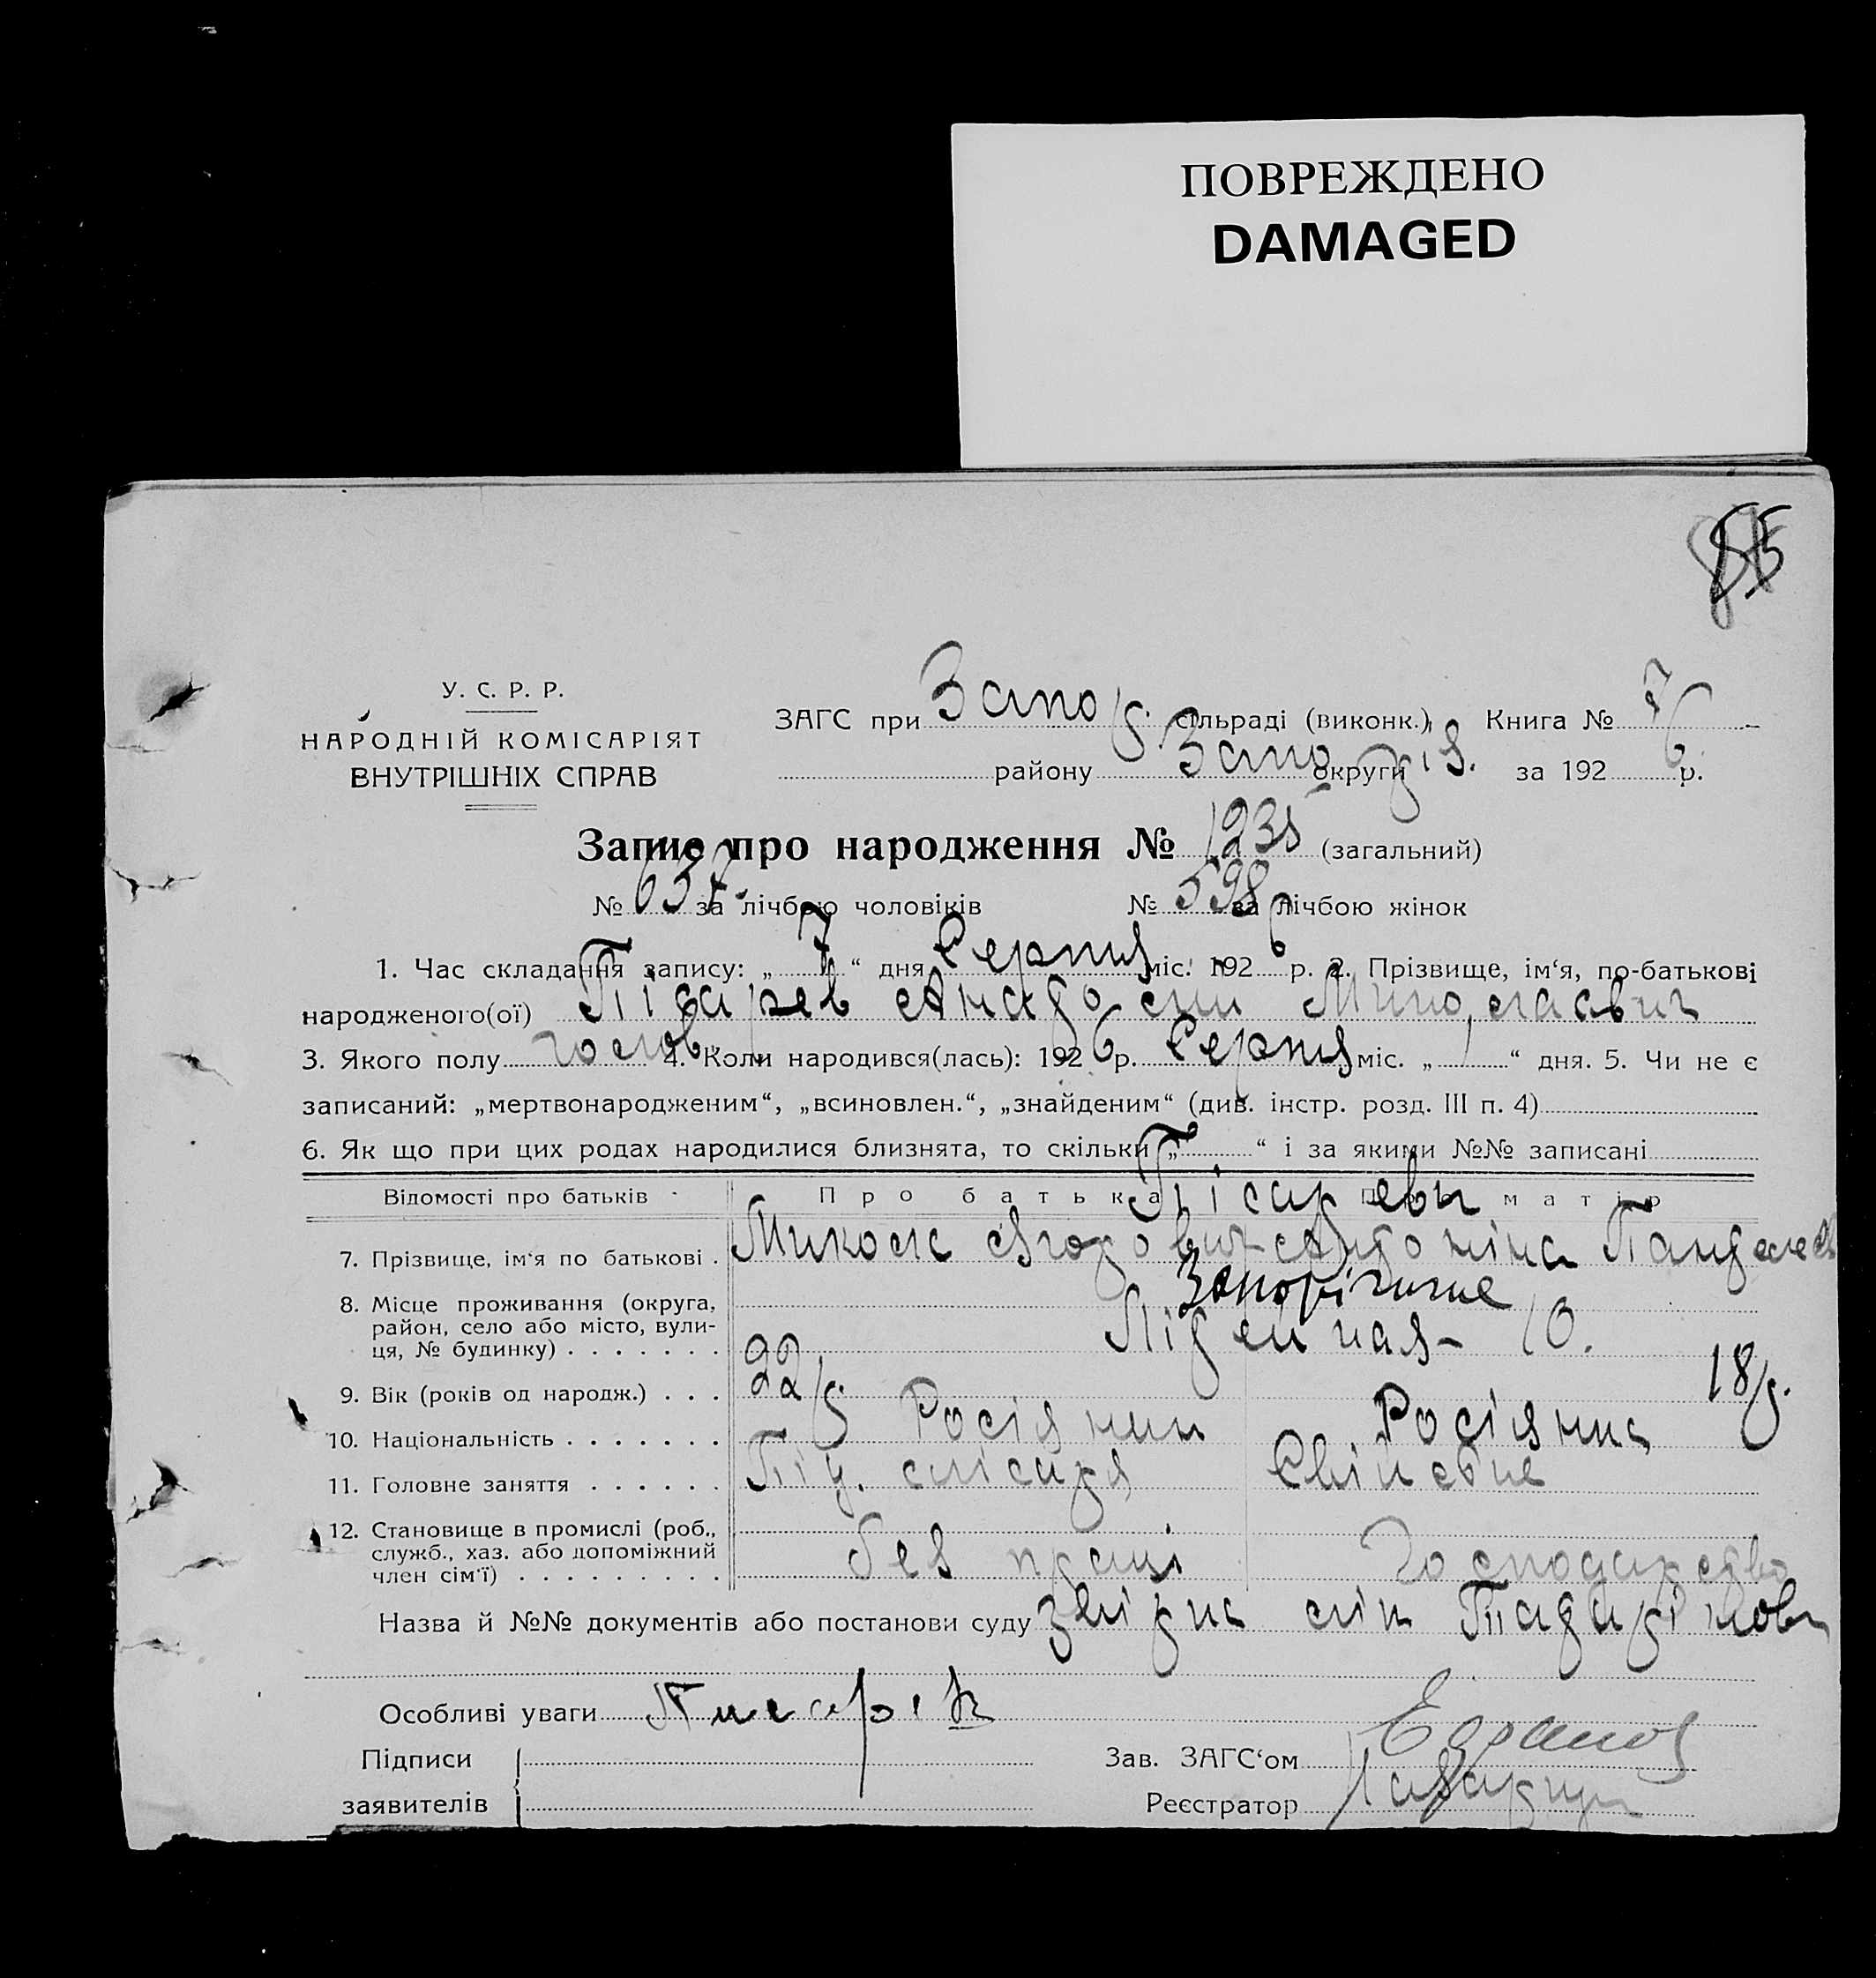 ПОВРЕЖДЕНО
DAMAGED
85
У. С. Р. Р.
НАРОДНІЙ КОМІСАРІЯТ
ВНУТРІШНІХ СПРАВ
ЗАГС при Запор. сільраді (виконк.) Книга № 7
району Запоріз. округи за 1926 р.
Запис про народження № 1235 (загальний)
№ 637 за лічбою чоловіків № 598 за лічбою жінок
1. Час складання запису: „7“ дня Серпня міс. 1926 р. 2. Прізвище, ім‘я, по-батькові
народженого(ої) Пісарев
3. Якого полу 4. Коли народився(лась): 1926 р. Серпня міс. „1“ дня. 5. Чи не є
записаний: „мертвонародженим“, „всиновлен.“, „знайденим“ (див. інстр. розд. III п. 4)
6. Як що при цих родах народилися близнята, то скільки „ “ і за якими №№ записані
Відомості про батьків Про батька Про матір
Пісареви
7. Прізвище, ім‘я по батькові . Микола Антоніна
8. Місце проживання (округа, район, село або місто, вулиця, № будинку) Запоріжжє
10.
9. Вік (років од народж.) . . . 22 р. 18 р.
10. Національність . . . . . . . Росіянин Росіянка
11. Головне заняття . . . . . . Під. слісаря Свійське
12. Становище в промислі (роб., служб., хаз. або допоміжний член сім‘ї) . . . . . . . . . без праці Господарство
Назва й №№ документів або постанови суду
Особливі уваги
Підписи
заявителів
Зав. ЗАГС‘ом
Реєстратор